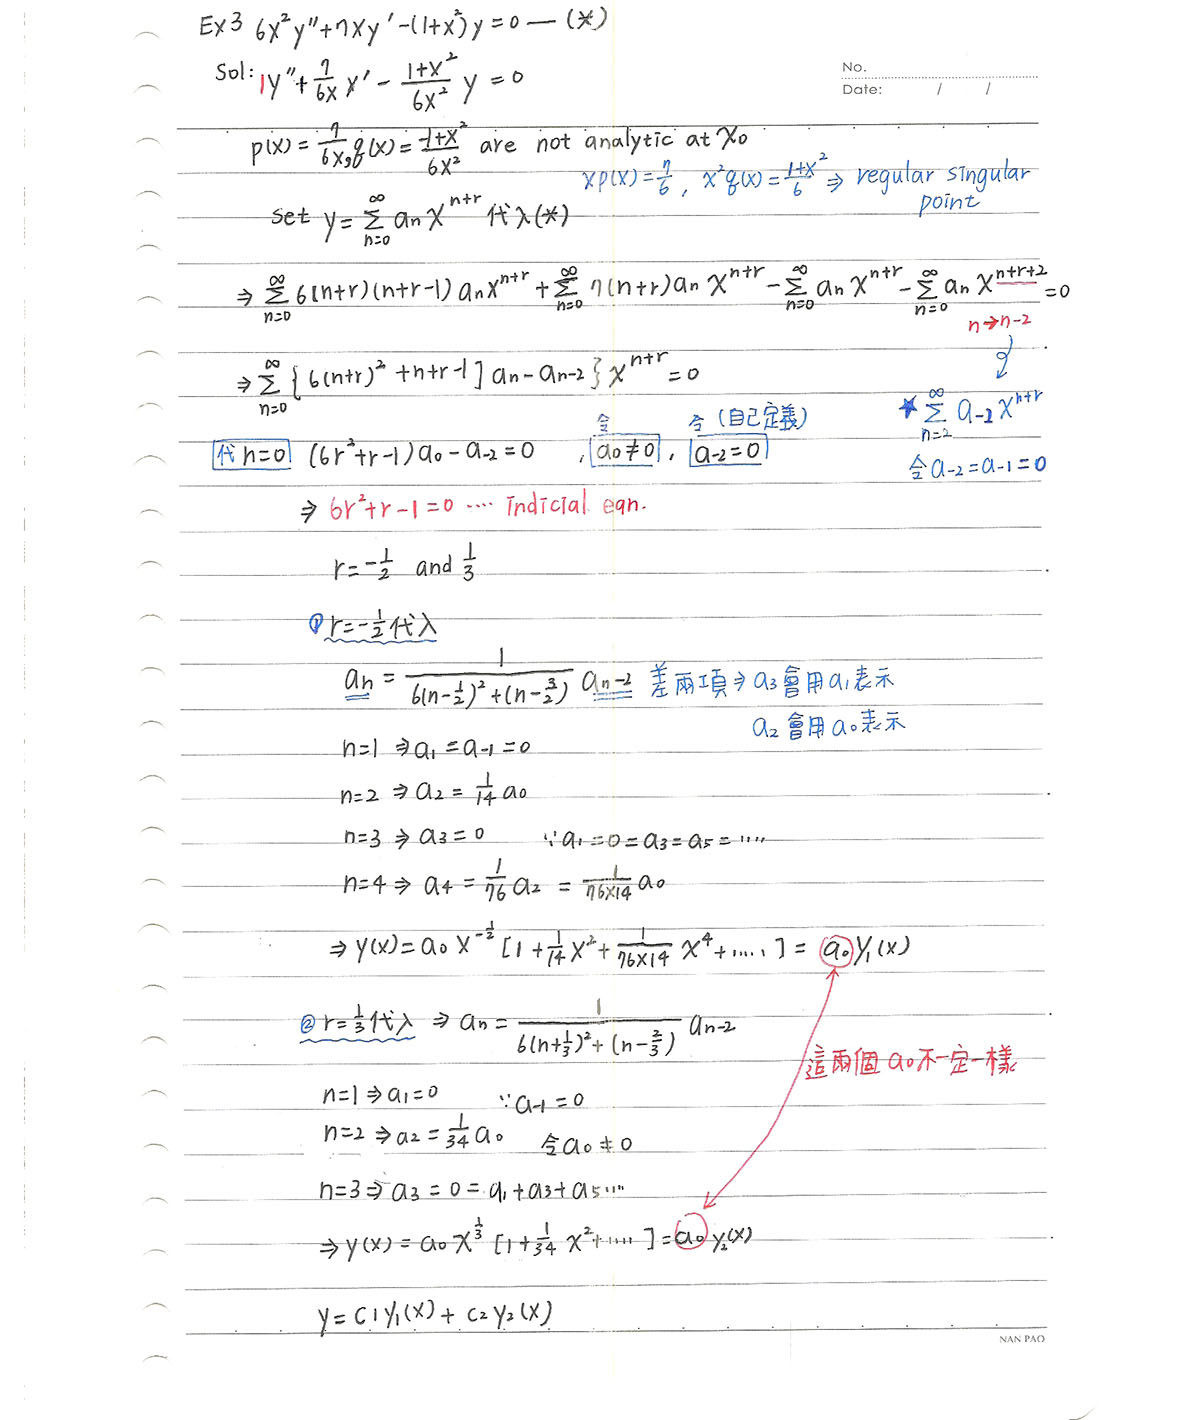 Ex3 6x²y''+7xy'-(1+x²)y=0 — (*)
No.
Date: / /
Sol: 1y''+7/6x x' - (1+x²)/6x² y = 0
p(x) = 7/6x, q(x) = -1+x²/6x² are not analytic at x₀
xp(x) = 7/6, x²q(x) = 1+x²/6 ⇒ regular singular point
Set y = Σ_{n=0}^{∞} aₙx^{n+r} 代入(*)
⇒ Σ_{n=0}^{∞} 6(n+r)(n+r-1)aₙx^{n+r} + Σ_{n=0}^{∞} 7(n+r)aₙx^{n+r} - Σ_{n=0}^{∞} aₙx^{n+r} - Σ_{n=0}^{∞} aₙx^{n+r+2} = 0
n→n-2
⇒ Σ_{n=0}^{∞} {6(n+r)²+n+r-1]aₙ-aₙ₋₂}x^{n+r} = 0
★ Σ_{n=2}^{∞} a₋₂x^{n+r}
令a₋₂=a₋₁=0
代n=0 (6r²+r-1)a₀-a₋₂=0 , 令 a₀≠0 , 令(自己定義) a₋₂=0
⇒ 6r²+r-1=0 ···· indicial eqn.
r=-1/2 and 1/3
① r=-1/2代入
aₙ = 1/(6(n-1/2)²+(n-3/2)) aₙ₋₂ 差兩項⇒a₃會用a₁表示
a₂會用a₀表示
n=1 ⇒a₁=a₋₁=0
n=2 ⇒a₂=1/14 a₀
n=3 ⇒a₃=0 ∵a₁=0=a₃=a₅=····
n=4⇒ a₄=1/76 a₂ = 1/(76×14) a₀
⇒ y(x)=a₀x^{-1/2} [1+1/14 x²+1/(76×14) x⁴+·····] = a₀y₁(x)
② r=1/3代入 ⇒ aₙ = 1/(6(n+1/3)²+(n-2/3)) aₙ₋₂
這兩個a₀不一定一樣
n=1⇒a₁=0 ∵a₋₁=0
n=2⇒a₂=1/34 a₀ 令a₀≠0
n=3⇒a₃=0=a₁+a₃+a₅····
⇒y(x)=a₀x^{1/3} [1+1/34 x²+····]=a₀y₂(x)
y=c1y₁(x)+c₂y₂(x)
NAN PAO